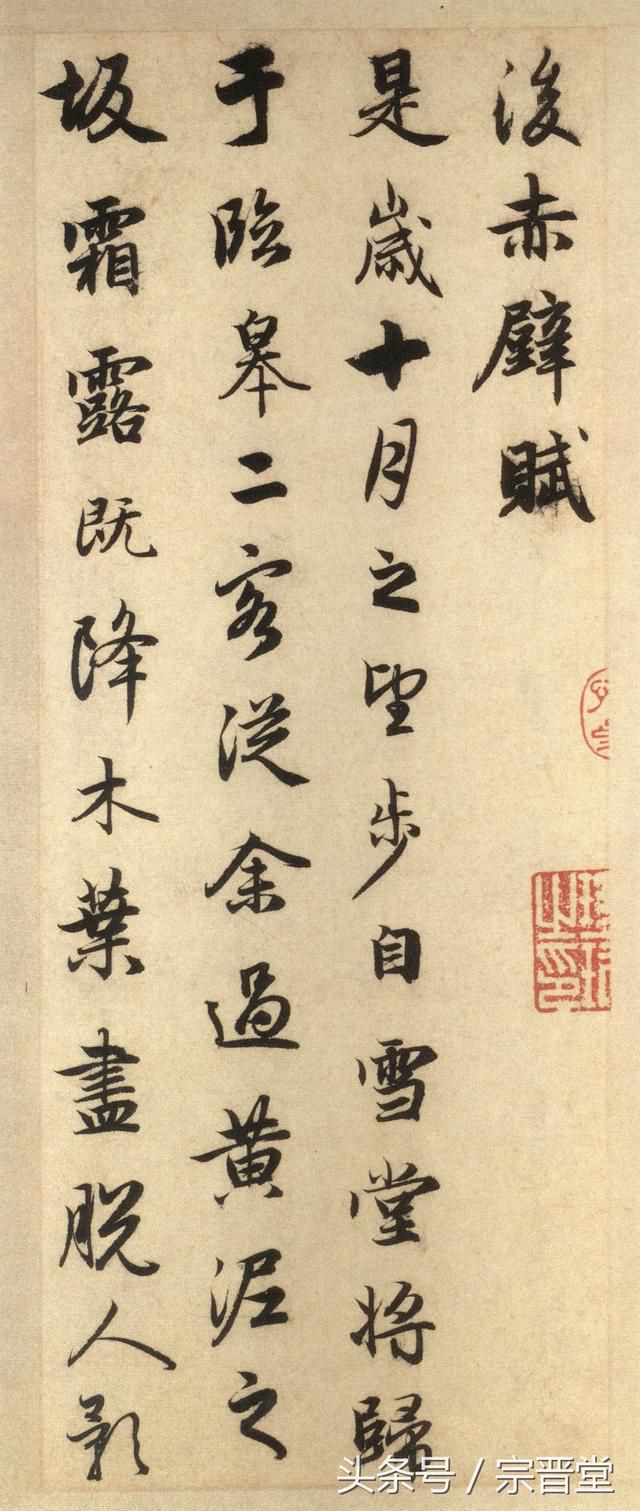 後赤壁賦
是歲十月之望步自雪堂將歸
于臨皋二客從余過黃泥之
坂霜露既降木葉盡脫人影
头条号 / 宗晋堂